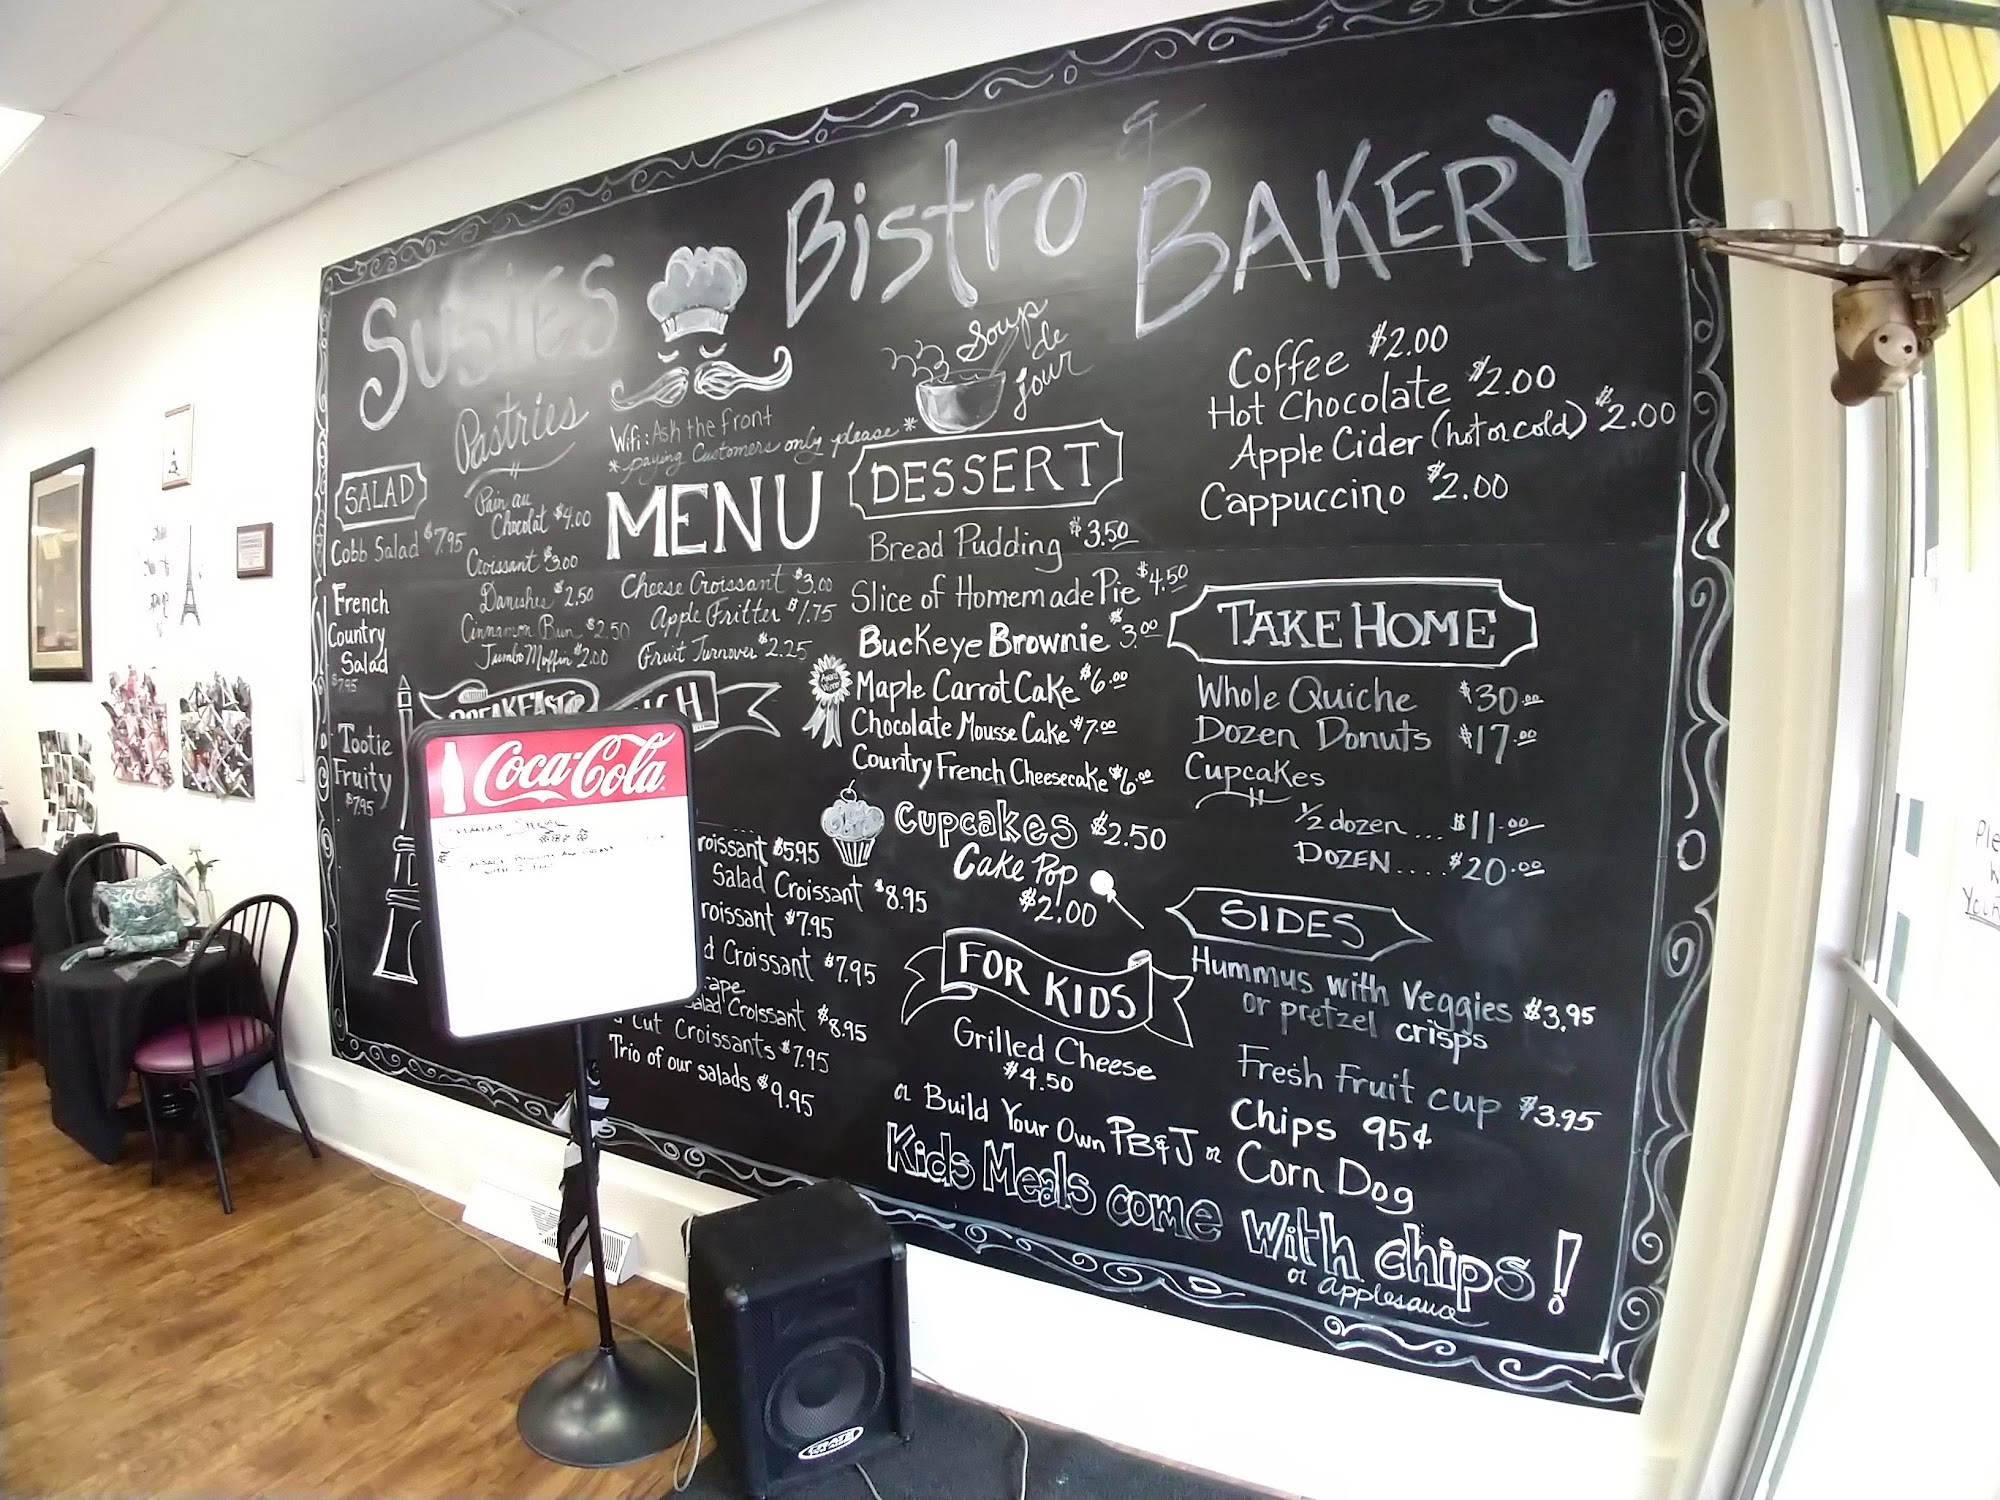 SUSiES
Bistro
&
BAKERY
Soup
de
jour
Wifi: Ask the front
* paying Customers only please *
SALAD
Cobb Salad $7.95
French
Country
Salad
$7.95
Tootie
Fruity
$7.95
Pastries
Pain au
Chocolat $4.00
Croissant $3.00
Danishes $2.50
Cinnamon Bun $2.50
Jumbo Muffin $2.00
MENU
Cheese Croissant $3.00
Apple Fritter $1.75
Fruit Turnover $2.25
BREAKFAST
Coca-Cola
roissant $5.95
Salad Croissant $8.95
roissant $7.95
d Croissant $7.95
ape
Salad Croissant $8.95
Cut Croissants $7.95
Trio of our salads $9.95
DESSERT
Bread Pudding $3.50
Slice of Homemade Pie $4.50
Buckeye Brownie $3.00
Award
Winner
Maple Carrot Cake $6.00
Chocolate Mousse Cake $7.00
Country French Cheesecake $6.00
Cupcakes $2.50
Cake Pop
$2.00
FOR KIDS
Grilled Cheese
$4.50
or Build Your Own PB&J or Corn Dog
Kids Meals come with chips!
or Applesauce
Coffee $2.00
Hot Chocolate $2.00
Apple Cider (hot or cold) $2.00
Cappuccino $2.00
TAKE HOME
Whole Quiche $30.00
Dozen Donuts $17.00
Cupcakes
1/2 dozen .... $11.00
DOZEN ..... $20.00
SIDES
Hummus with Veggies $3.95
or pretzel crisps
Fresh Fruit cup $3.95
Chips 95¢
CRATE